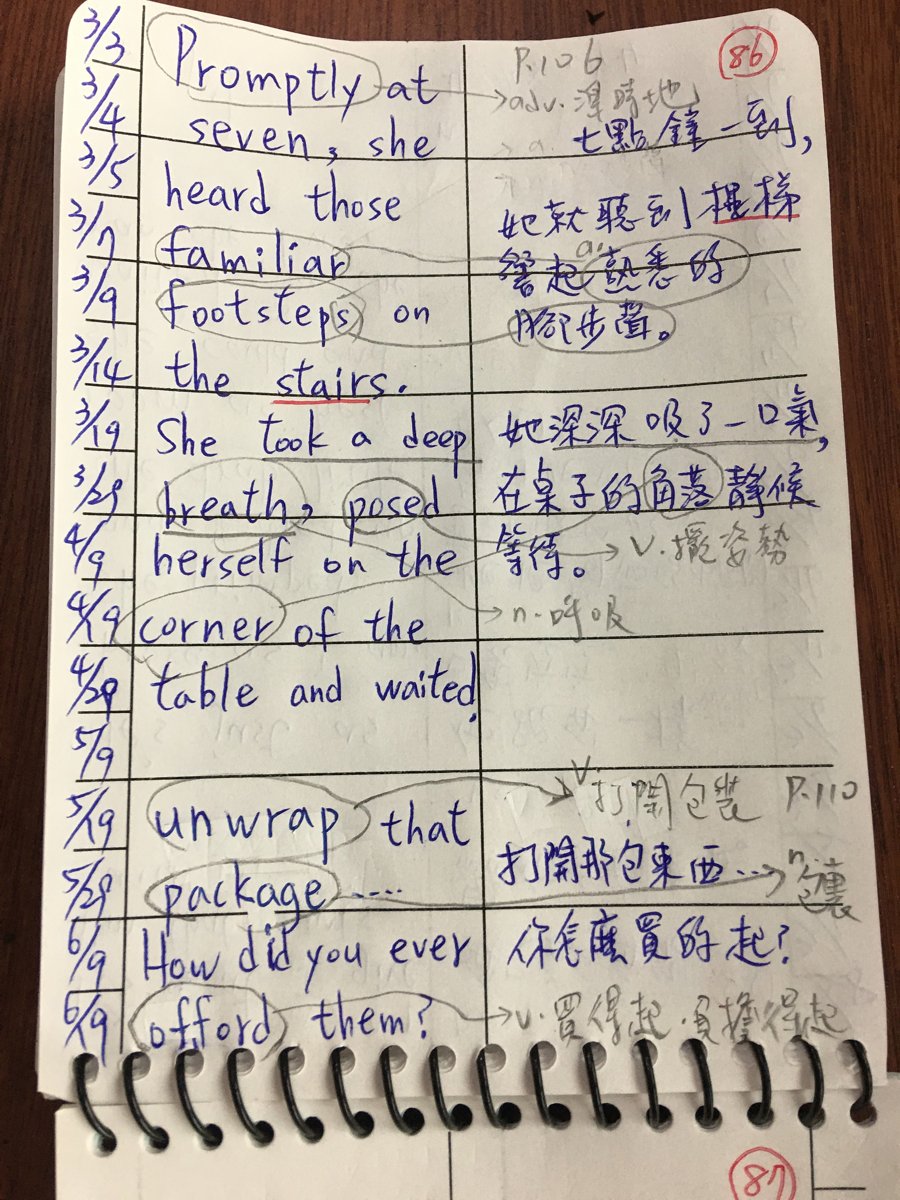 3/3
3/4
3/5
3/7
3/9
3/14
3/19
3/29
4/9
4/19
4/29
5/9
5/19
5/29
6/9
6/19
Promptly at
seven, she
heard those
familiar
footsteps on
the stairs.
She took a deep
breath, posed
herself on the
corner of the
table and waited.
unwrap that
package ....
How did you ever
offord them?
P.106
86
adv. 準時地
七點鐘一到,
她就聽到樓梯
響起熟悉的
a.
腳步聲。
她深深吸了一口氣,
在桌子的角落靜候
等待。
v. 擺姿勢
n. 呼吸
v. 打開包裝 P.110
打開那包東西...
n. 包裹
你怎麼買的起?
v. 買得起.負擔得起
87